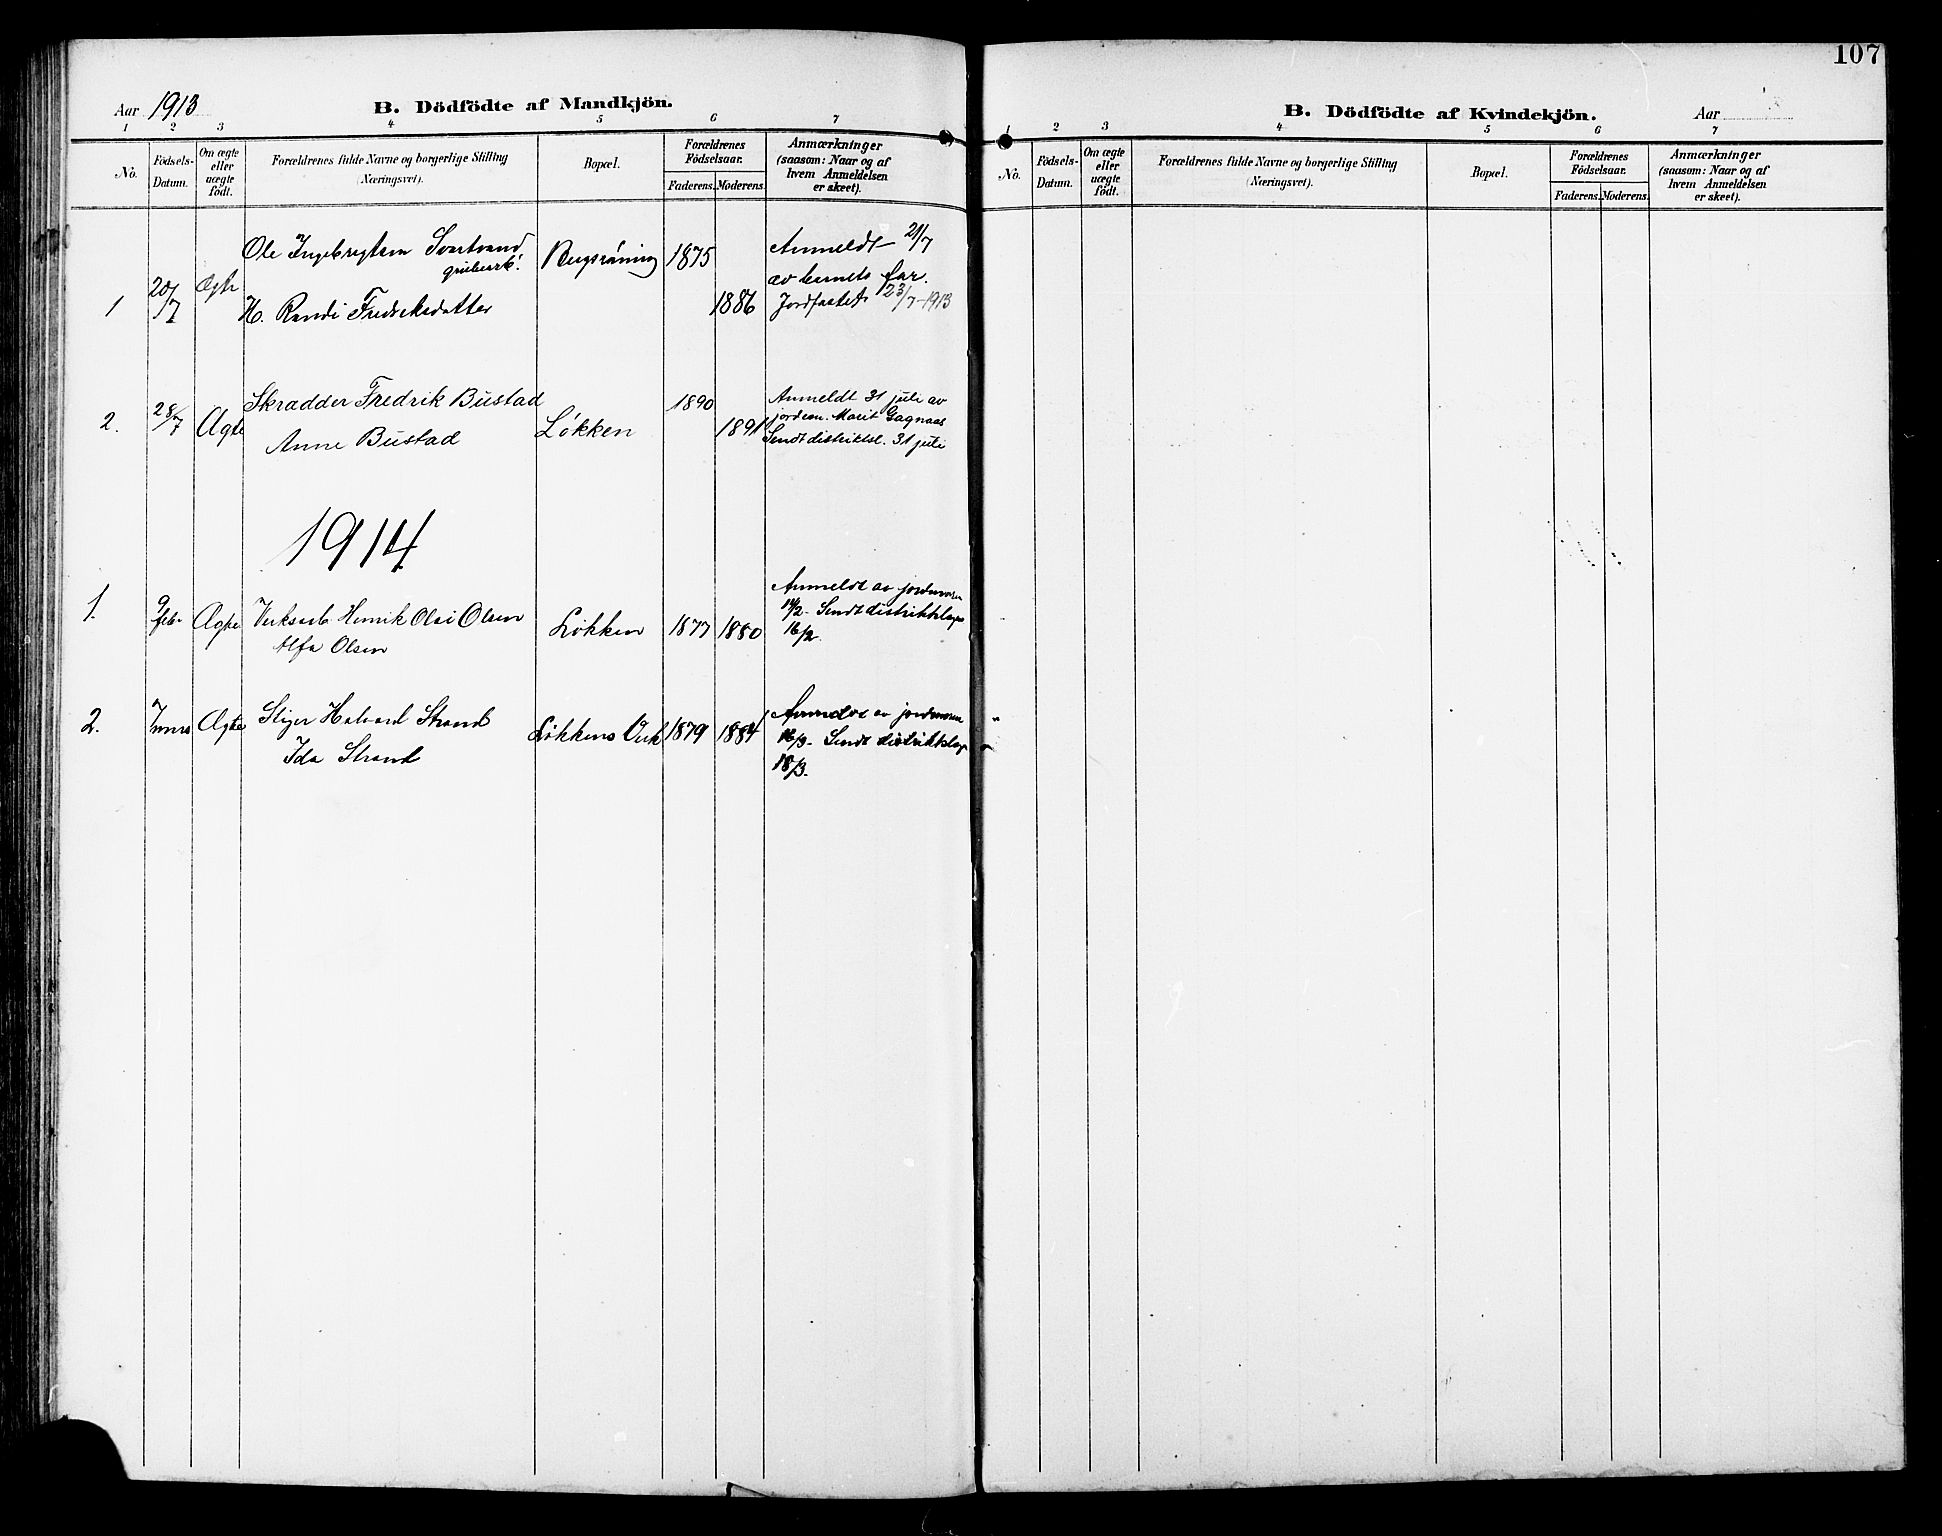 107
Aar 1913
B. Dödfödte af Mandkjön.
1 2 3 4 5 6 7
No.
Födsels-
Datum.
Om ægte
eller
uægte
födt.
Forældrenes fulde Navne og borgerlige Stilling
(Næringsvei).
Bopæl.
Forældrenes
Födselsaar.
Faderens. Moderens.
Anmærkninger
(saasom: Naar og af
hvem Anmeldelsen
er skeet).
1
20/7
Ægte
Ole Ingebrigtsen Svartvand
grubearb.
H. Randi Fredriksdatter
1875
1886
Anmeldt 21/7
av barnets far.
Jordfæstet 23/7-1913
2.
28/7
Ægte
Skrædder Fredrik Bustad
Anne Bustad
Løkken
1890
1891
Anmeldt 31 juli av
jordem. Marit Gagnaas
Sendt distriktsl. 31 juli
1914
1.
9 feb.
Ægte
Verksarb. Henrik Olai Olsen
Alfa Olsen
Løkken
1877 1880
Anmeldt av jordmoren
14/2. Sendt distriktslægen
16/2.
2.
Ægte
Stiger Halvard Strand
Ida Strand
Løkkens Verk
1879 1884
Anmeldt av jordmoren
16/3. Sendt distriktslægen
18/3.
B. Dödfödte af Kvindekjön.
Aar
1 2 3 4 5 6 7
No.
Födsels-
Datum.
Om ægte
eller
uægte
födt.
Forældrenes fulde Navne og borgerlige Stilling
(Næringsvei).
Bopæl.
Forældrenes
Födselsaar.
Faderens. Moderens.
Anmærkninger
(saasom: Naar og af
hvem Anmeldelsen
er skeet).